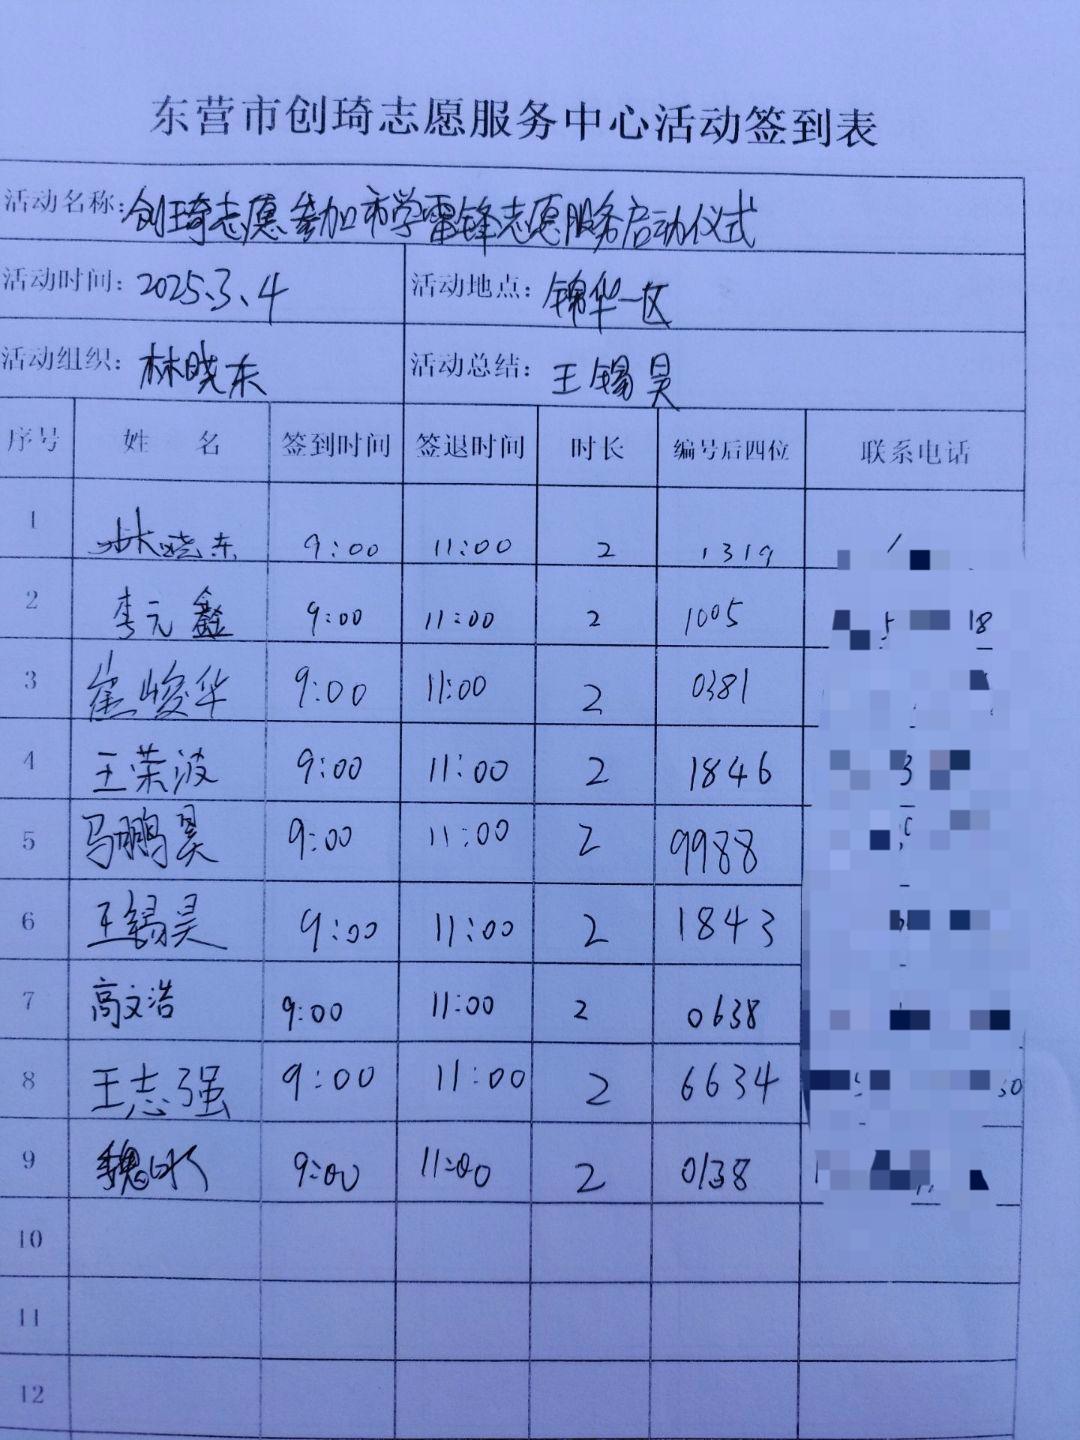 东营市创琦志愿服务中心活动签到表
活动名称：创琦志愿参加市学雷锋志愿服务启动仪式
活动时间：2025.3.4 活动地点：锦华一区
活动组织：林晓东 活动总结：王锡昊
序号 姓 名 签到时间 签退时间 时长 编号后四位 联系电话
1 林晓东 9:00 11:00 2 1319
2 李元鑫 9:00 11:00 2 1005 18
3 崔峻华 9:00 11:00 2 0381
4 王荣波 9:00 11:00 2 1846 3
5 马鹏昊 9:00 11:00 2 9988
6 王锡昊 9:00 11:00 2 1843
7 高文浩 9:00 11:00 2 0638
8 王志强 9:00 11:00 2 6634 50
9 魏 9:00 11:00 2 0138
10
11
12